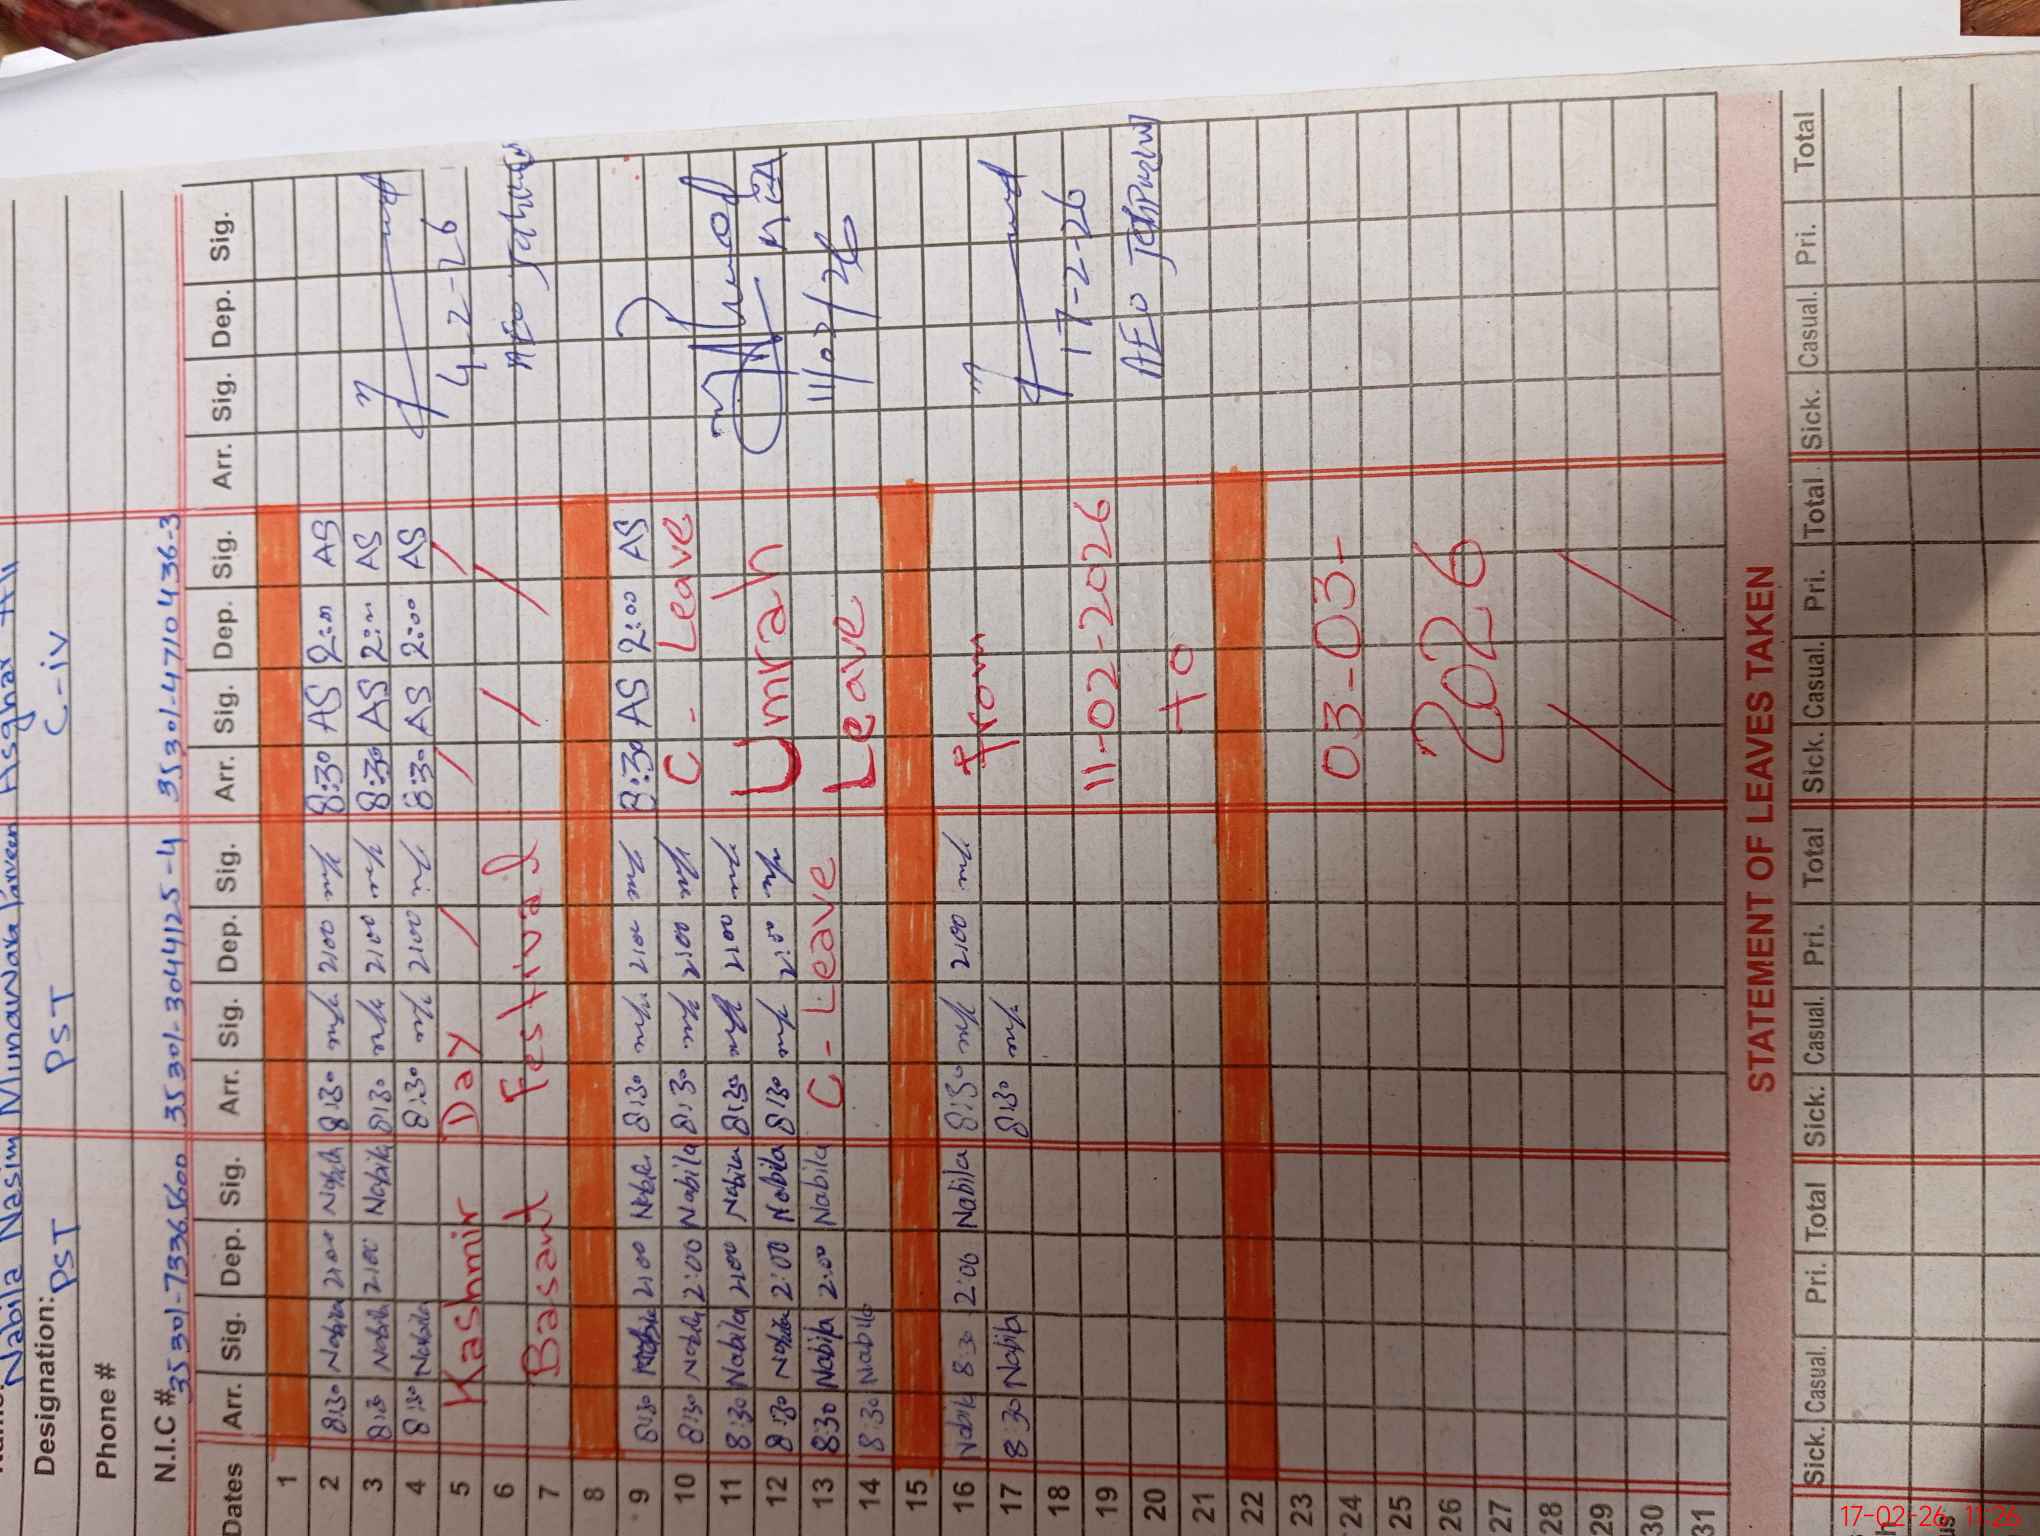 Nabila Nasim Munawar Parveen Asghar Ali
Designation: PST PST C-iv
Phone #
N.I.C # 35301-7336560 0 35301-3044125-4 35301-4710436-3
Dates Arr. Sig. Dep. Sig. Arr. Sig. Dep. Sig. Arr. Sig. Dep. Sig. Arr. Sig. Dep. Sig.
1
2 8:30 Nabila 2:00 Nabila 8:30 2:00 8:30 AS 2:00 AS
3 8:30 Nabila 2:00 Nabila 8:30 2:00 8:30 AS 2:00 AS
4 8:30 Nabila 8:30 2:00 8:30 AS 2:00 AS
4-2-26
5 Kashmir Day / / /
6 / /
7 Basant Festival
8
9 8:30 Nabila 2:00 Nabila 8:30 2:00 8:30 AS 2:00 AS
10 8:30 Nabila 2:00 Nabila 8:30 2:00 C - Leave
11 8:30 Nabila 2:00 Nabila 8:30 2:00
12 8:30 Nabila 2:00 Nabila 8:30 2:00 Umrah
13 8:30 Nabila 2:00 Nabila C - Leave 11/02/26
14 8:30 Nabila Leave
15
16 Nabila 8:30 2:00 Nabila 8:30 2:00 from
17 8:30 Nabila 8:30
18 17-2-26
19 11-02-2026
20 AEO
21 to
22
23
24 03-03-
25
26 2026
27
28
29 / /
30
31
STATEMENT OF LEAVES TAKEN
Sick. Casual. Pri. Total Sick. Casual. Pri. Total Sick. Casual. Pri. Total Sick. Casual. Pri. Total
17-02-26 11:26